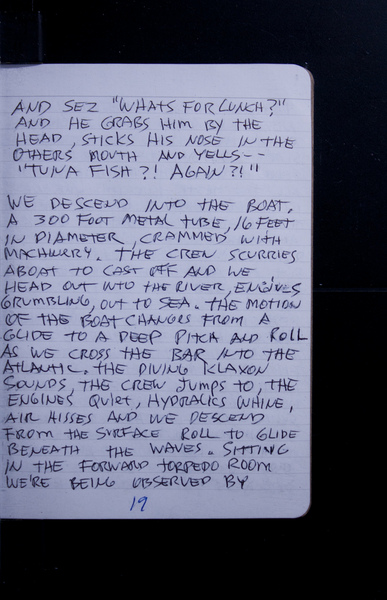 AND SEZ "WHATS FOR LUNCH?"
AND HE GRABS HIM BY THE
HEAD, STICKS HIS NOSE IN THE
OTHERS MOUTH AND YELLS--
"TUNA FISH?! AGAIN?!"
WE DESCEND INTO THE BOAT,
A 300 FOOT METAL TUBE, 16 FEET
IN DIAMETER, CRAMMED WITH
MACHINERY. THE CREW SCURRIES
ABOAT TO CAST OFF AND WE
HEAD OUT INTO THE RIVER, ENGINES
GRUMBLING, OUT TO SEA. THE MOTION
OF THE BOAT CHANGES FROM A
GLIDE TO A DEEP PITCH AND ROLL
AS WE CROSS THE BAR INTO THE
ATLANTIC. THE DIVING KLAXON
SOUNDS, THE CREW JUMPS TO, THE
ENGINES QUIET, HYDRALICS WHINE,
AIR HISSES AND WE DESCEND
FROM THE SURFACE ROLL TO GLIDE
BENEATH THE WAVES. SITTING
IN THE FORWARD TORPEDO ROOM
WE'RE BEING OBSERVED BY
19